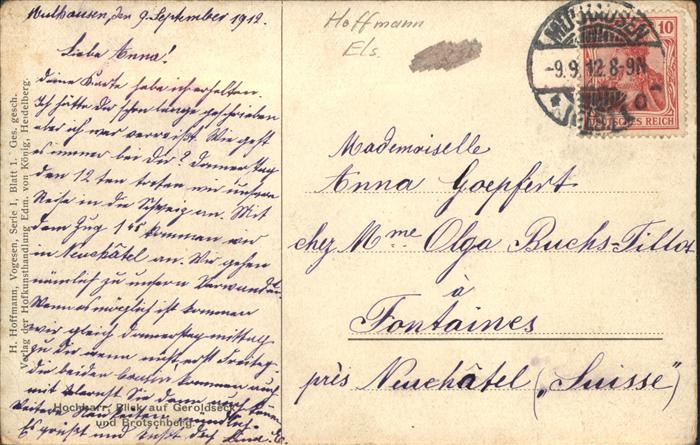 Mülhausen, den 9. September 1912.
Liebe Anna!
deine Karte habe ich erhalten.
Ich hätte Dir schon lange geschrieben
aber ich war verreist. Wie geht
es immer bei Dir? Donnerstag
den 12ten treten wir unsere
Reise in die Schweiz an. Mit
dem Zug 1 kommen wir
in Neuchâtel an. Wir gehen
nämlich zu unsern Verwandten.
Wenn es möglich ist kommen
wir gleich Donnerstag mittag
zu Dir wenn nicht erst Freitag.
die beiden kommen auch
mit
Weitere mündlich.
Es grüsst und küsst Dich
Hochbarr; Blick auf Geroldseck
und Brotschberg.
H. Hoffmann, Vogesen, Serie I, Blatt 1. Ges. gesch.
Verlag der Hofkunsthandlung Edm. von König, Heidelberg.
Hoffmann
Els.
MÜLHAUSEN
-9.9.12.8-9N
10
DEUTSCHES REICH
Mademoiselle
Anna Goepfert
chez Mme Olga Buchs-Tillot
à
Fontaines
près Neuchâtel („Suisse")